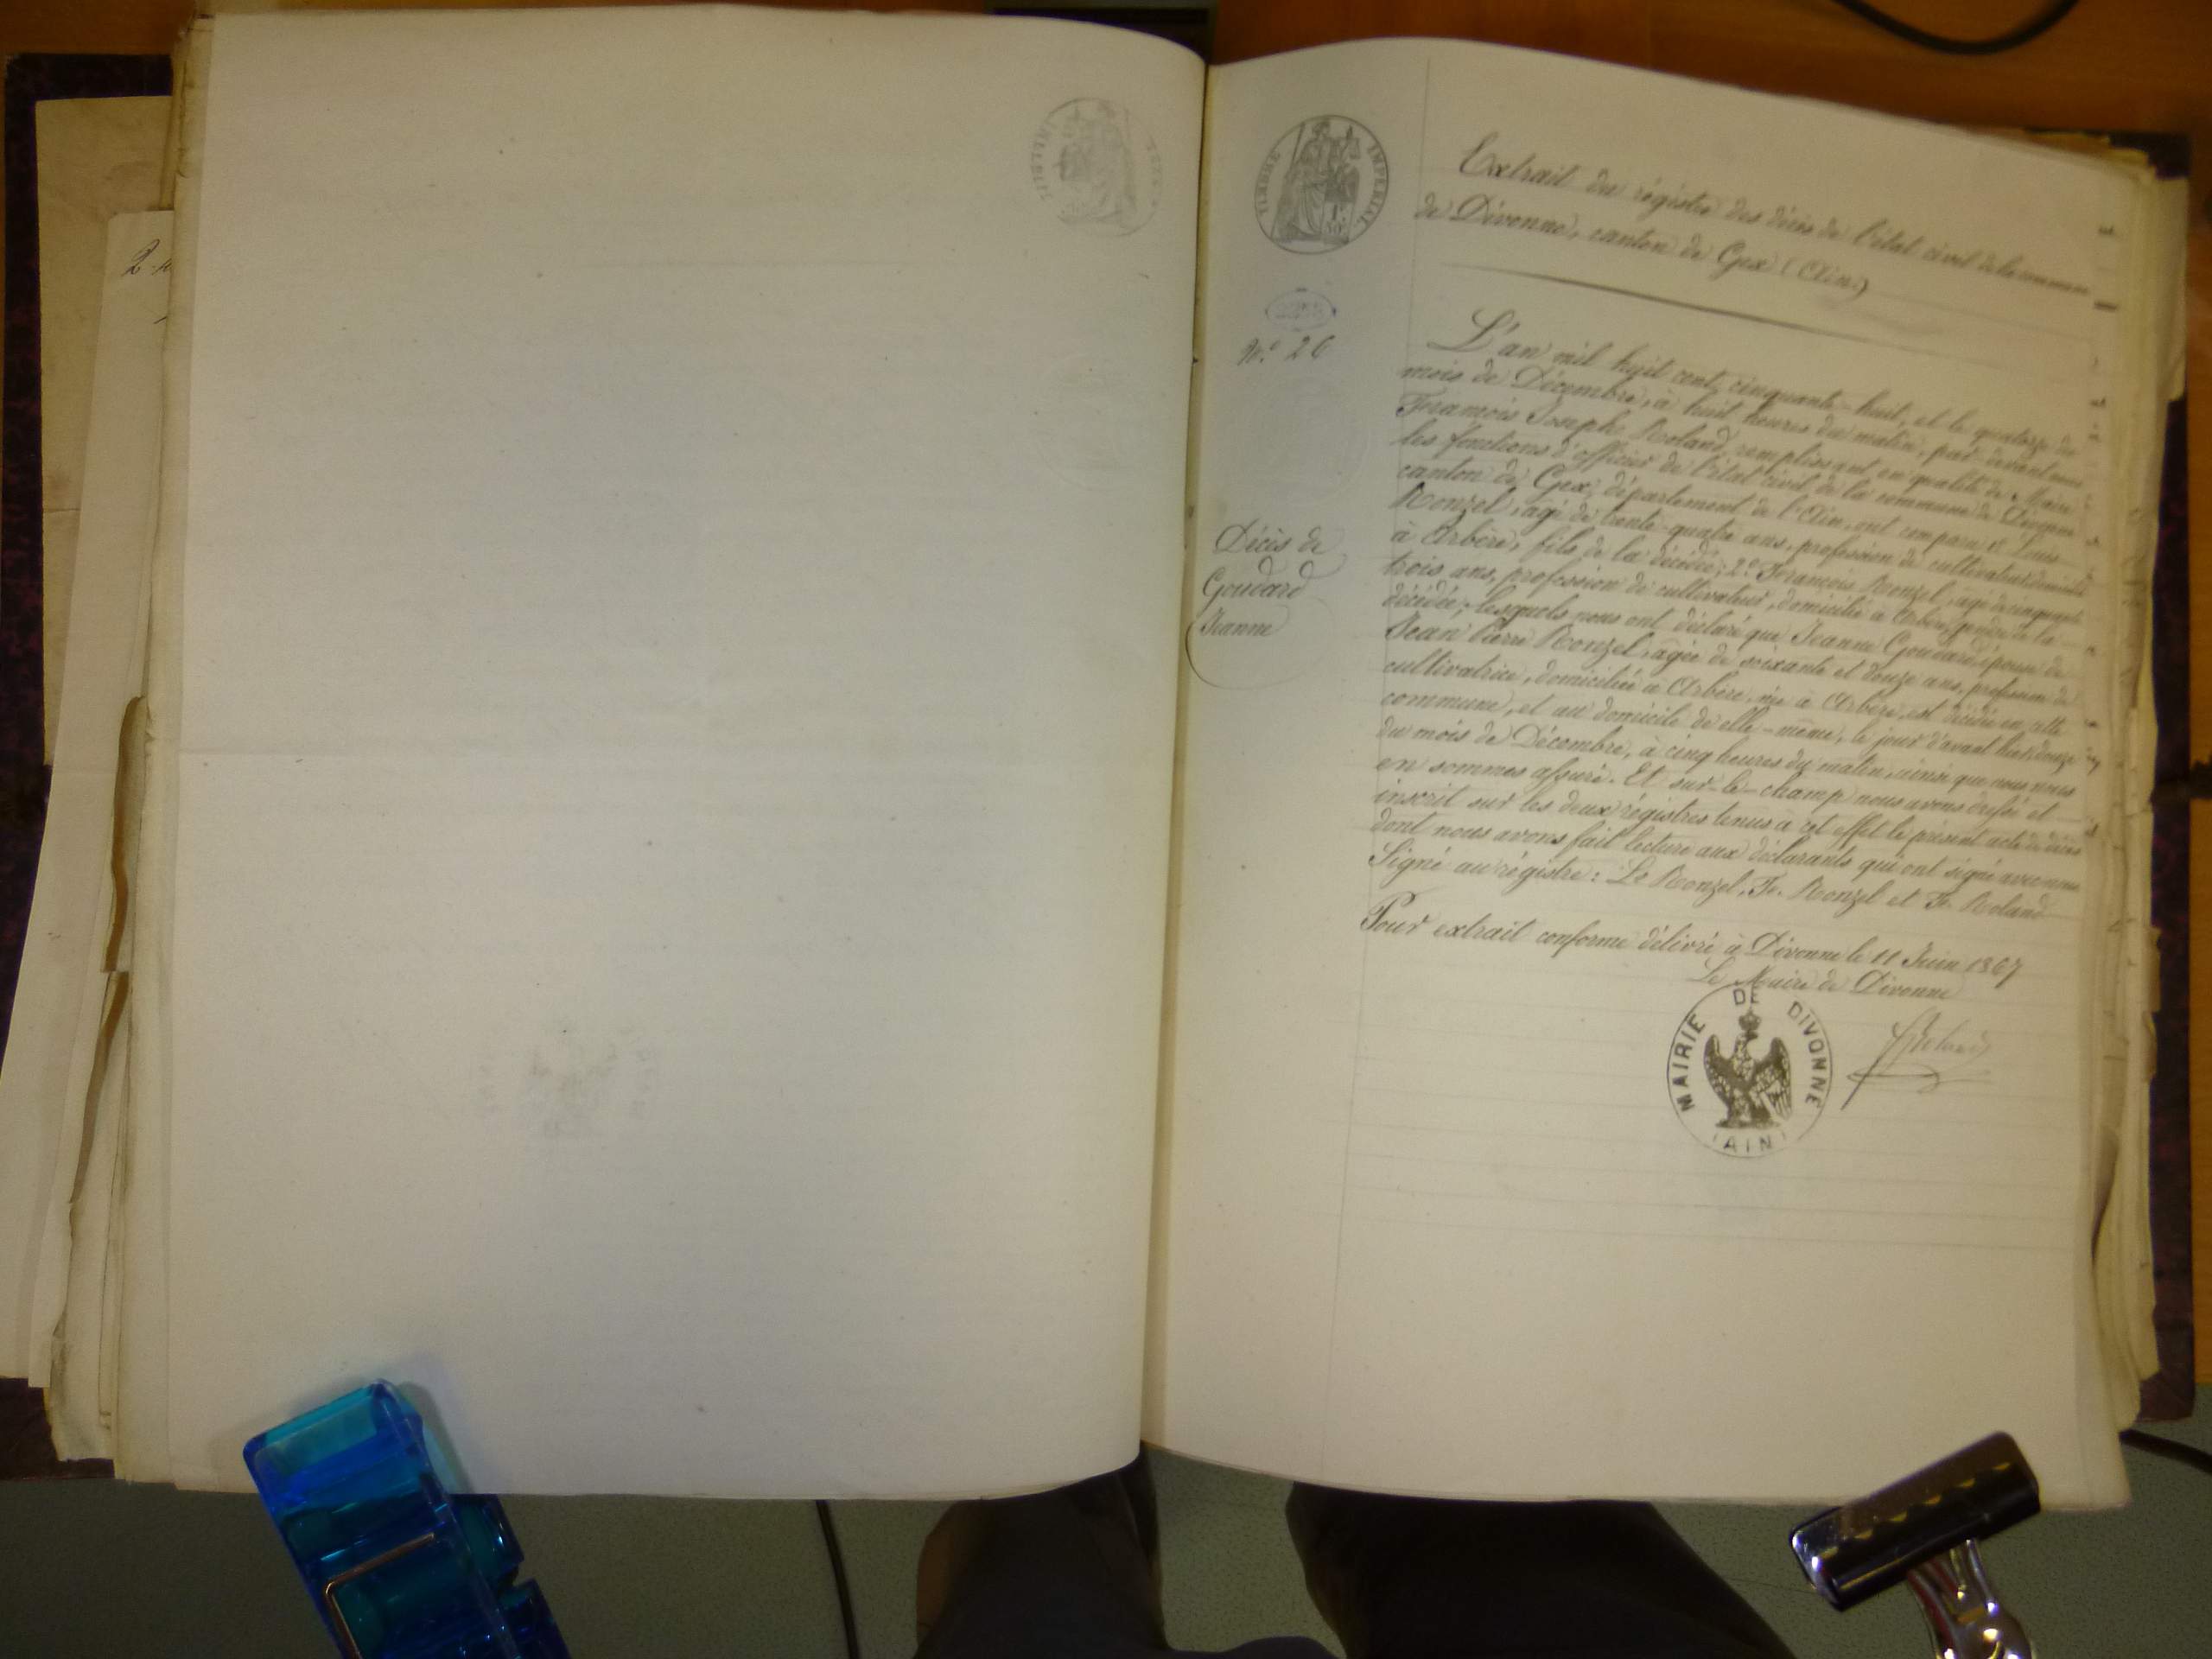 2
TIMBRE IMPERIAL
Extrait du régistre des décès de l'état civil de la commune
de Divonne, canton de Gex (Ain)
N.º 26
L'an mil huit cent cinquante-huit, et le quatorze du
mois de Décembre, à huit heures du matin, par devant nous
Francois Joseph Roland remplissant en qualité de Maire
les fonctions d'officier de l'état civil de la commune de Divonne
canton de Gex, département de l'Ain, ont comparu 1º Louis
Ronzel, agé de trente-quatre ans, profession de cultivateur domicilié
à Arbère, fils de la décédée; 2º Francois Ronzel, agé de cinquante
trois ans, profession de cultivateur, domicilié à Arbère, de la
décédée; lesquels nous ont déclaré que Jeanne Goudard, épouse de
Jean Pierre Ronzel, agée de soixante et douze ans, profession de
cultivatrice, domiciliée à Arbère, née à Arbère, est décédée en cette
commune, et au domicile de elle-même, le jour d'avant hier douze
du mois de Décembre, à cinq heures du matin, ainsi que nous nous
en sommes assuré. Et sur-le-champ nous avons dressé et
inscrit sur les deux régistres tenus à cet effet le présent acte de décès
dont nous avons fait lecture aux déclarants qui ont signé avec nous
Signé au régistre: Ls Ronzel, Fs. Ronzel et Fs. Roland
Décès de
Goudard
Jeanne
Pour extrait conforme délivré à Divonne le 11 Juin 1867
Le Maire de Divonne
MAIRIE DE DIVONNE
(AIN)